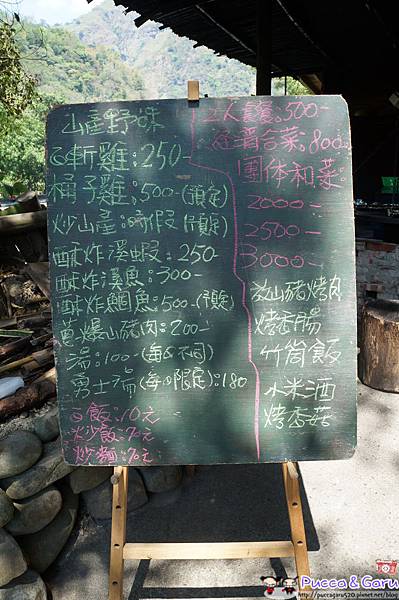 山產野味
白斬雞:250-
桶子雞:500-(預定)
炒山產:時價(預定)
酥炸溪蝦:250-
酥炸溪魚:300-
酥炸鯛魚:500-(預定)
蔥爆山豬肉:200-
湯:100-(每日不同)
勇士湯(每日限定):180
白飯:10元
炒飯:70元
炒麵:70元
2人套餐:500-
合菜:800
團体和菜
2000-
2500-
3000-
放山豬烤肉
烤香腸
竹筒飯
小米酒
烤香菇
Pucca & Garu
http://puccagaru520.pixnet.net/blog